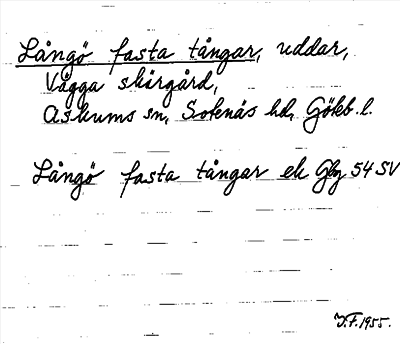 Långö fasta tångar, uddar,
Vägga skärgård,
Askums sn, Sotenäs hd, Göteb. l.
Långö fasta tångar ek Gbg 54 SV
J.F. 1955.